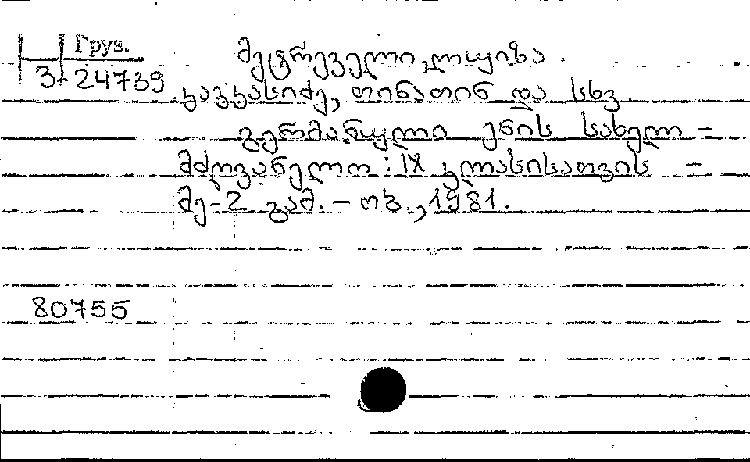 Груз.
3-24739
მეტრეველი, ლუიზა.
კავკასიძე, თინათინ და სხვ
გერმანული ენის სახელ-
მძღვანელო: IX კლასისათვის -
მე-2 გამ. - თბ., 1981.
80755